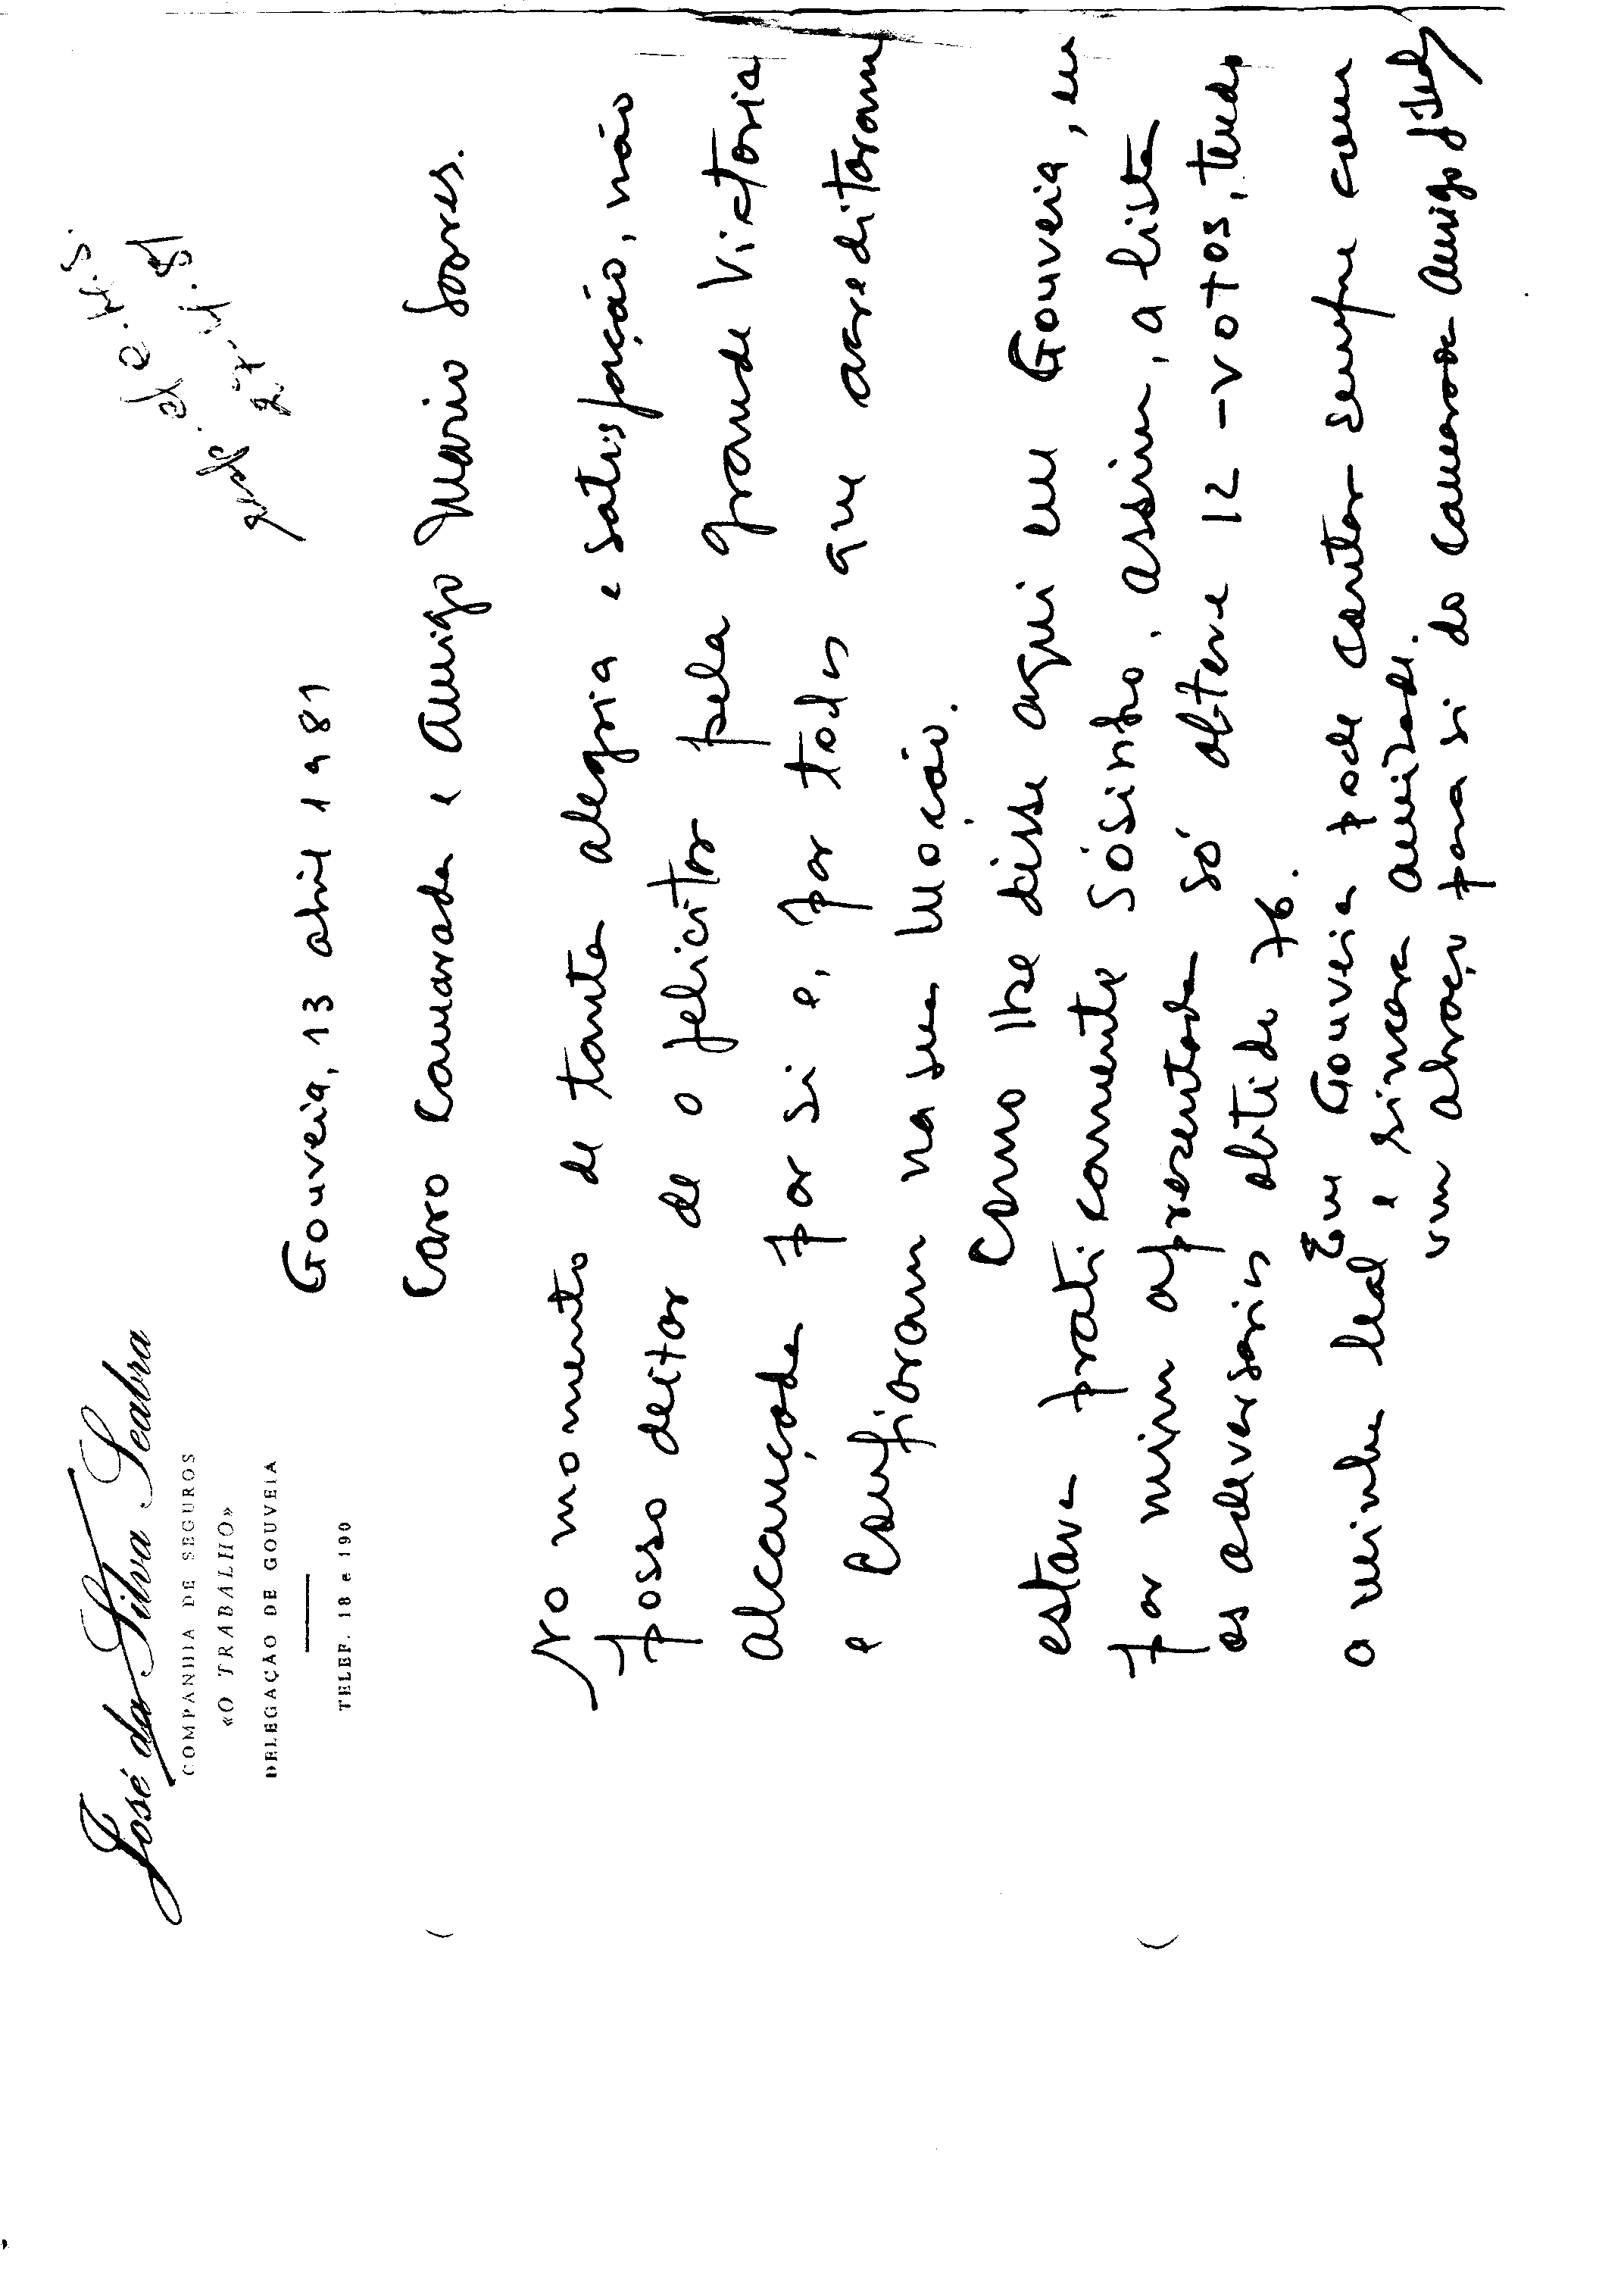 José da Silva Seabra
COMPANHIA DE SEGUROS
«O TRABALHO»
DELEGAÇÃO DE GOUVEIA
TELEF. 18 e 190
27.4.81
Gouveia, 13 abril 1981
Caro Camarada e Amigo Mario Soares.
No momento de tanta alegria e satisfação, não
posso deitar de o felicitar pela grande Victoria
alcançada por si e, por todos que acreditaram
e confiaram na sua moção.
Como lhe disse aqui em Gouveia, eu
estava praticamente sósinho, assim, a lista
por mim apresentada só obteve 12 - votos, tendo
os adversarios obtido 76.
Em Gouveia pode contar sempre com
a minha leal e sincera amizade.
um abraço para si do camarada Amigo